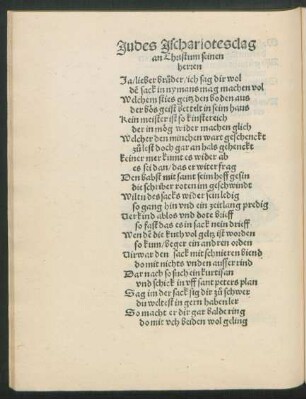 Judes Jschariotes clag
an Christum seinen
herren
Ja/lieber brůder/ich sag dir wol
dē sack in nymans mag machen vol
Welchem sties geitz den boden aus
der bös geist bettelt in sein haus
Kein meister ist so kunstereich
der in mög wider machen glich
Welcher den münchen wart geschenckt
zů lest doch gar an hals gehenckt
keiner mer kumt es wider ab
es sei dan/das er witer frag
Den babst mit samt seim hoff gesin
die schriber roten im geschwindt
Wiltu des sacks wider sein ledig
so gang hin vnd ein zeitlang predig
Verkind ablos vnd dote brieff
so fast das es in sack nein drieff
Wen dē die kuth vol gelt ist worden
so kum/beger ein andren orden
Vir war den sack mit schnieren biend
do mit nichts vnden ausser rind
Dar nach so sůch ein kurtisan
vnd schick in vff sant peters plan
Sag im der sack sig dir zů schwer
du weltest in gern haben ler
So macht er dir gar balde ring
do mit vch beiden wol geling